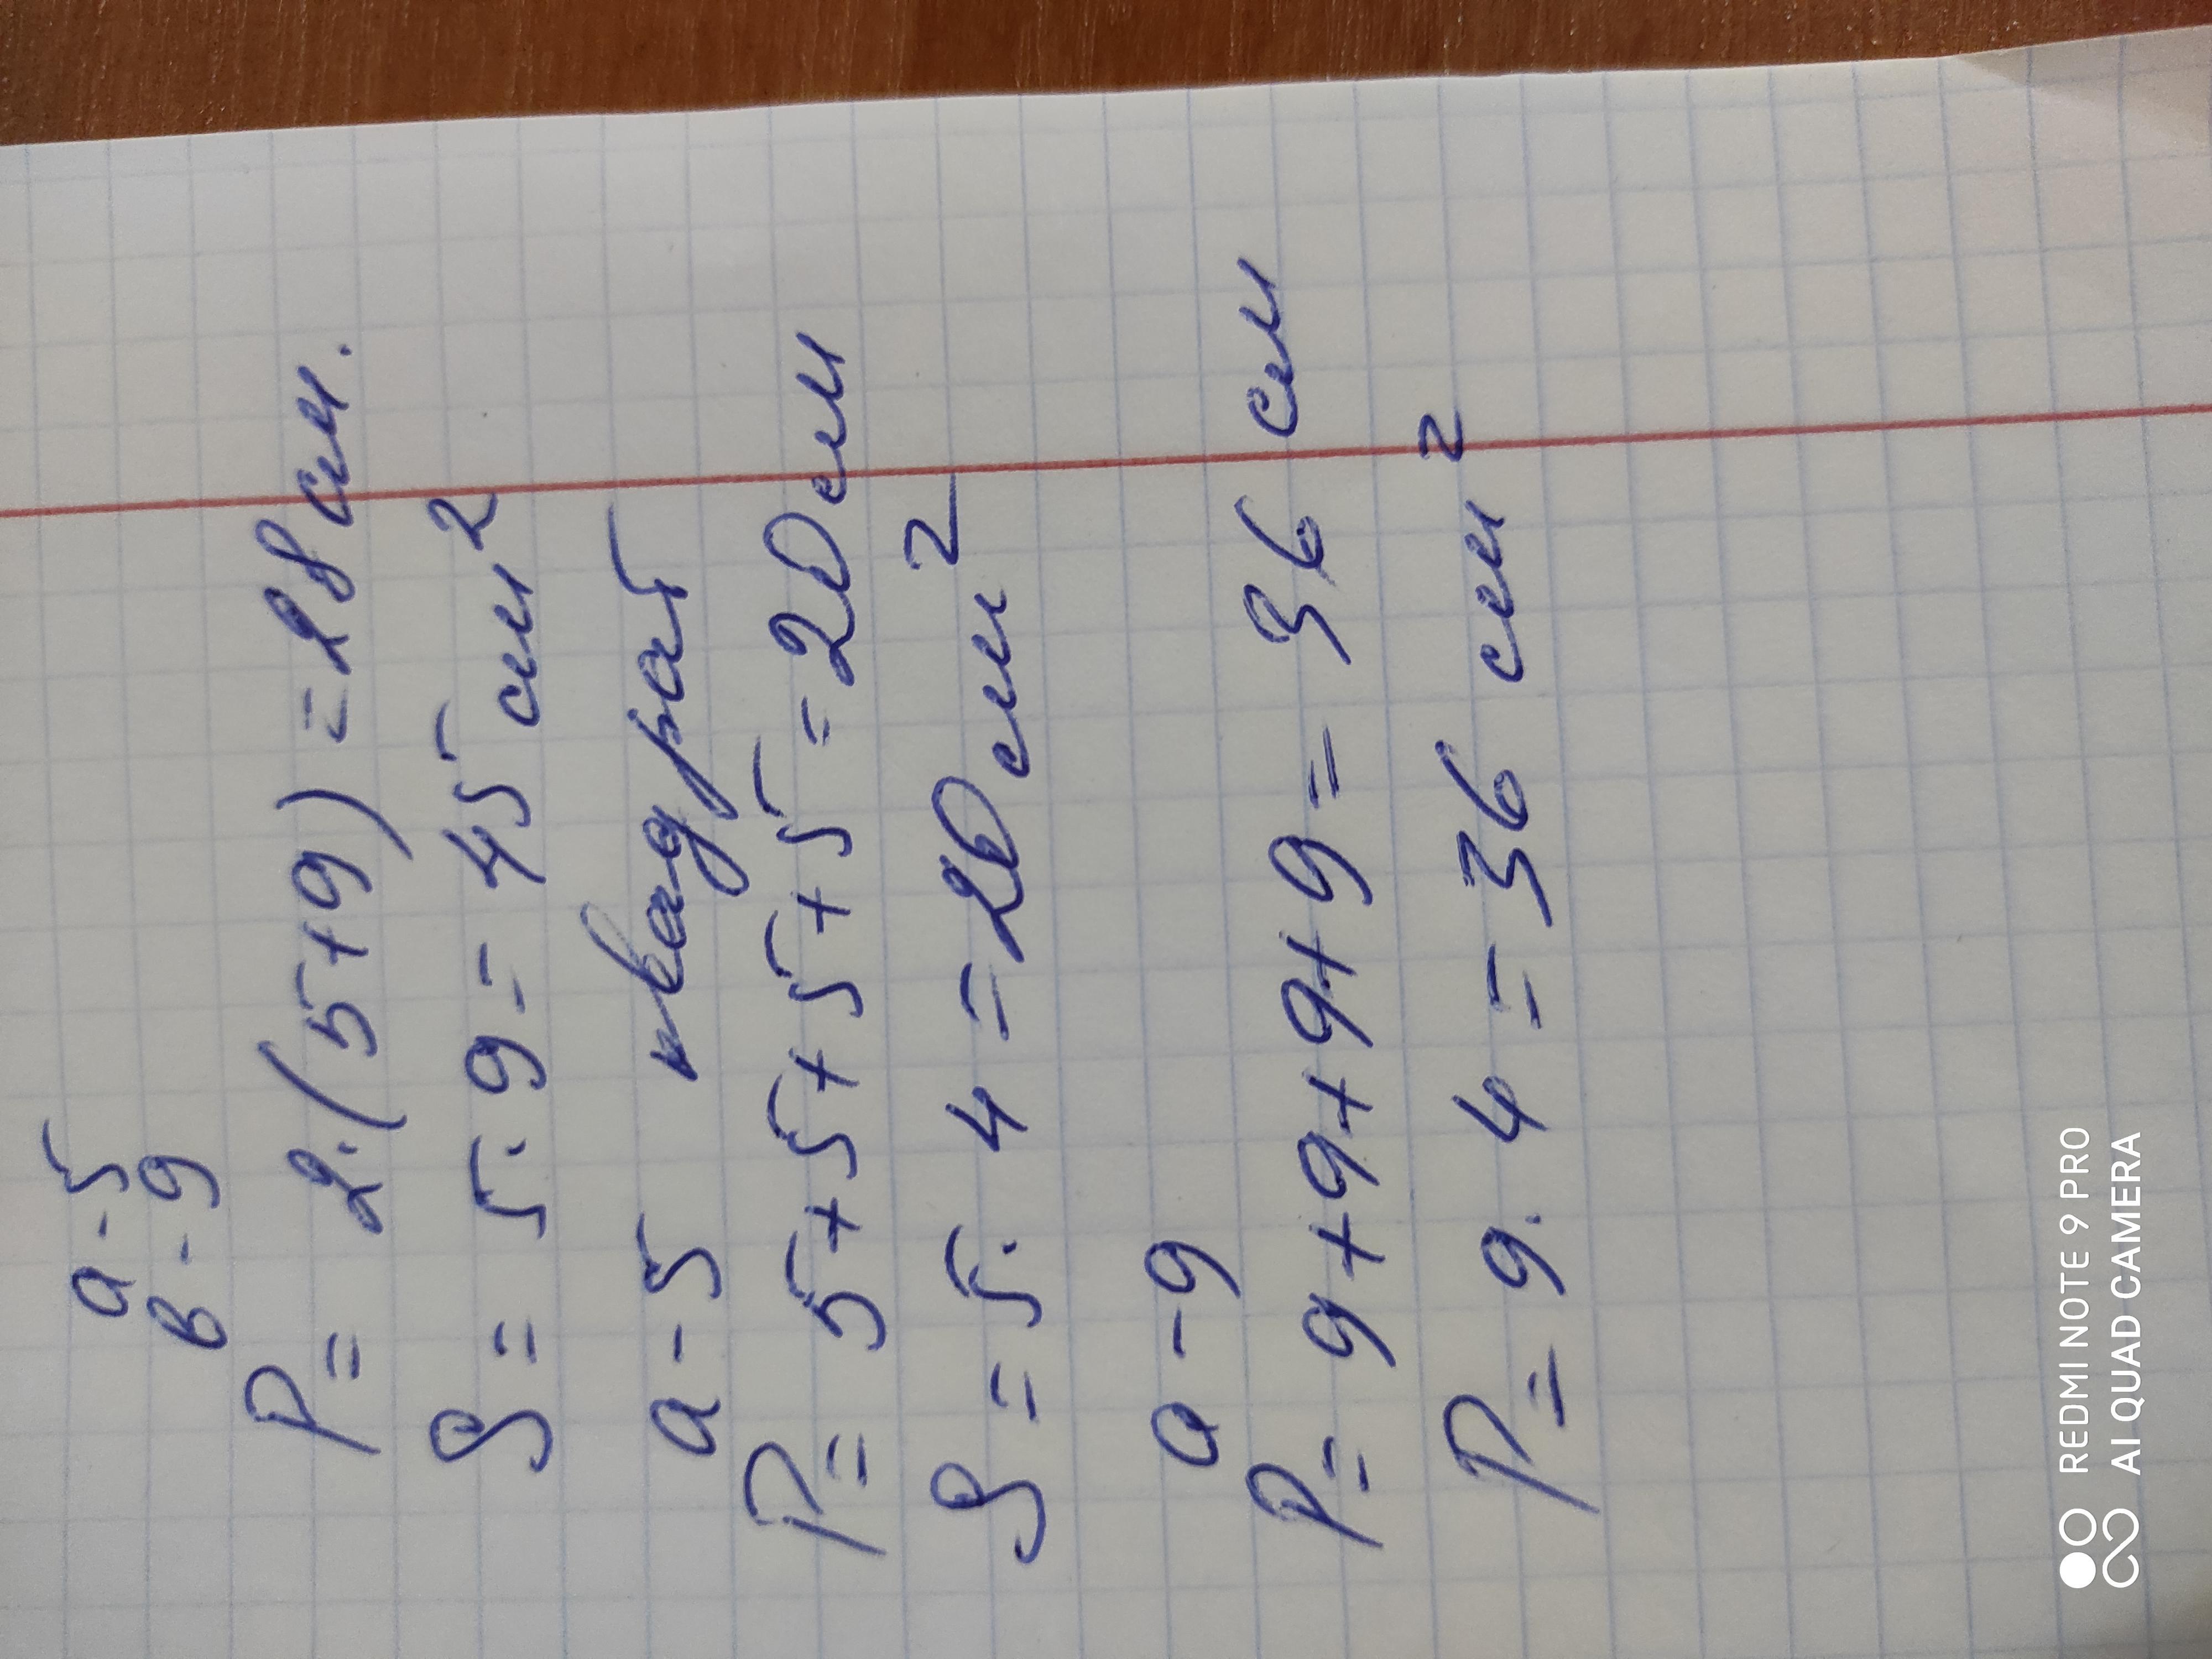 а - 5
в - 9
P = 2·(5+9) = 28 см.
S = 5·9 = 45 см²
а - 5 квадрат
P = 5+5+5+5+5 = 20 см
S = 5·4 = 20 см²
а - 9
P = 9+9+9+9 = 36 см
P = 9·4 = 36 см²
REDMI NOTE 9 PRO
AI QUAD CAMERA